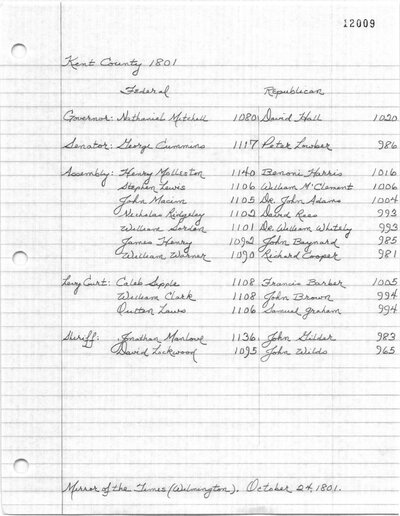 12009
Kent County 1801
Federal Republican
Governor: Nathaniel Mitchell 1080 David Hall 1020
Senator: George Cummins 1117 Peter Lowber 986
Assembly: Henry Molleston 1140 Benoni Harris 1016
Stephen Lewis 1106 William McClement 1006
John Macim 1105 Dr. John Adams 1004
Nicholas Ridgeley 1102 David Rees 993
William Sorden 1101 Dr. William Whitely 993
James Henry 1092 John Baynard 985
William Warner 1090 Richard Cooper 981
Levy Curt: Caleb Sipple 1108 Francis Barber 1005
William Clark 1108 John Brown 994
Outten Laws 1106 Samuel Graham 994
Sheriff: Jonathan Manlove 1136 John Gilder 983
David Lockwood 1095 John Wilds 965
Mirror of the Times (Wilmington), October 24, 1801.